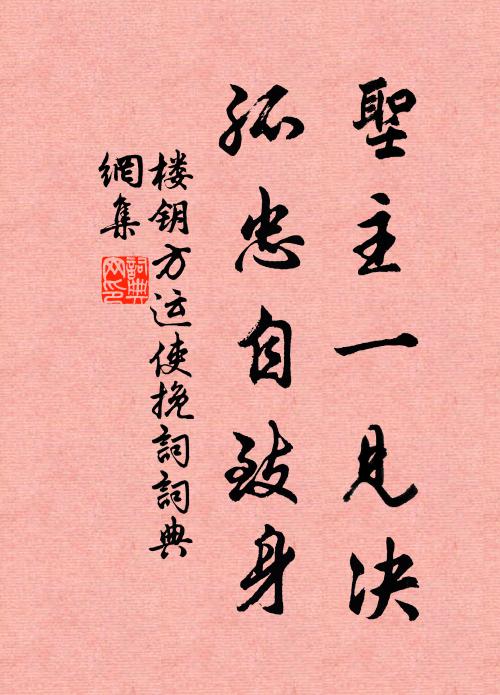 聖主一見决
孤忠自致身
楼钥方运使挽詞詞典
網集
詞典網印